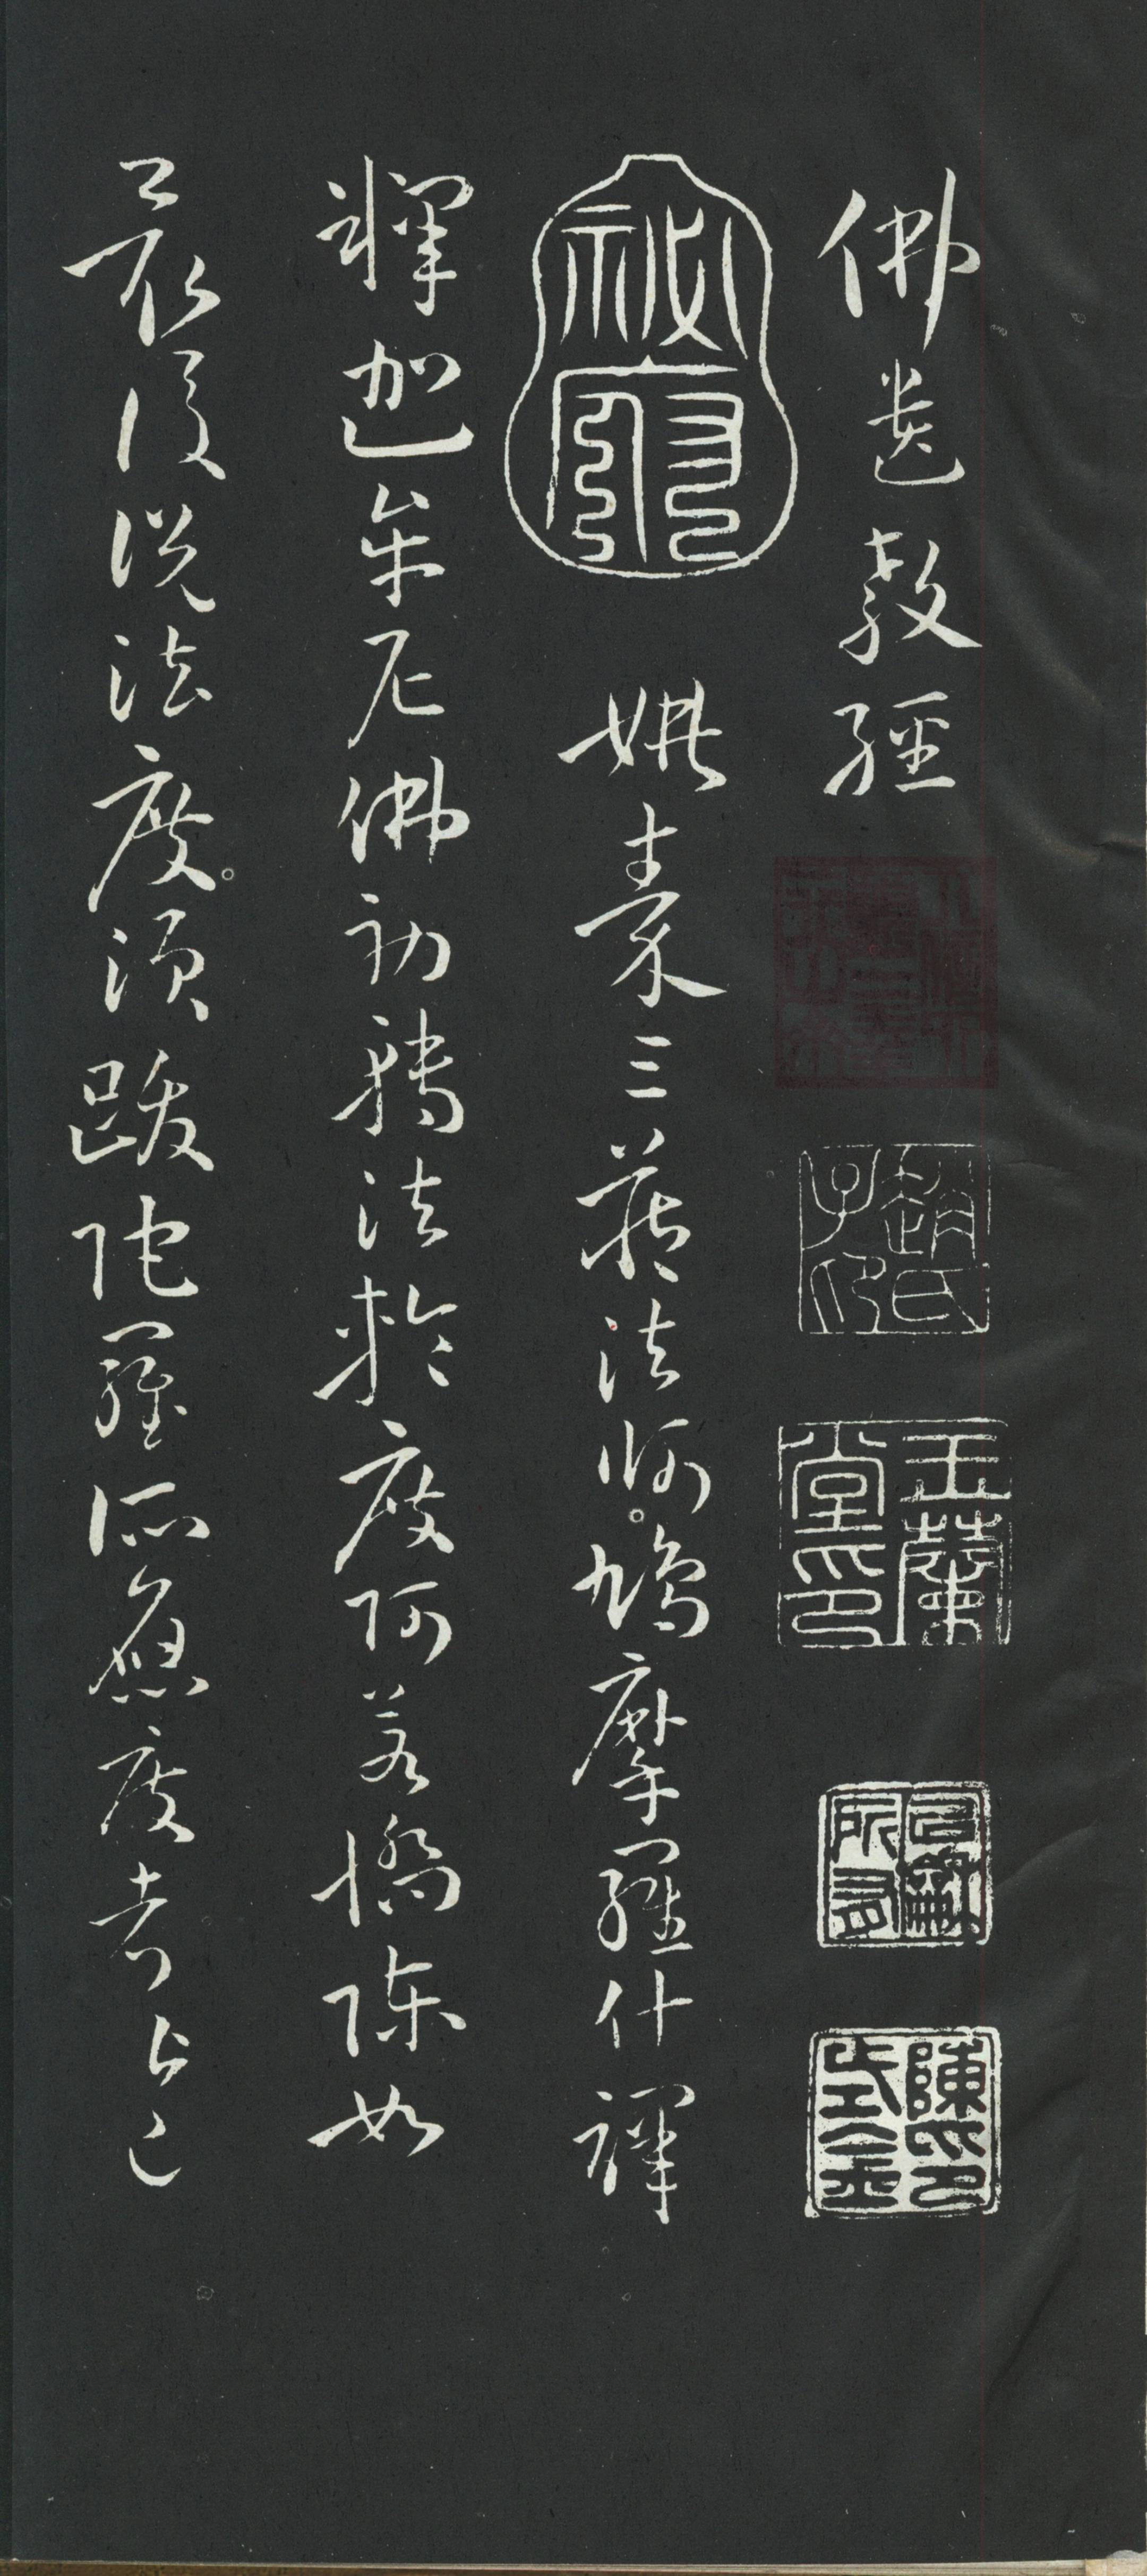 佛遺教經
姚秦三藏法師鳩摩羅什譯
釋迦牟尼佛初轉法輪度阿若憍陳如
最後說法度須跋陀羅所應度者皆已
祕府
趙氏子印
玉蘭堂印